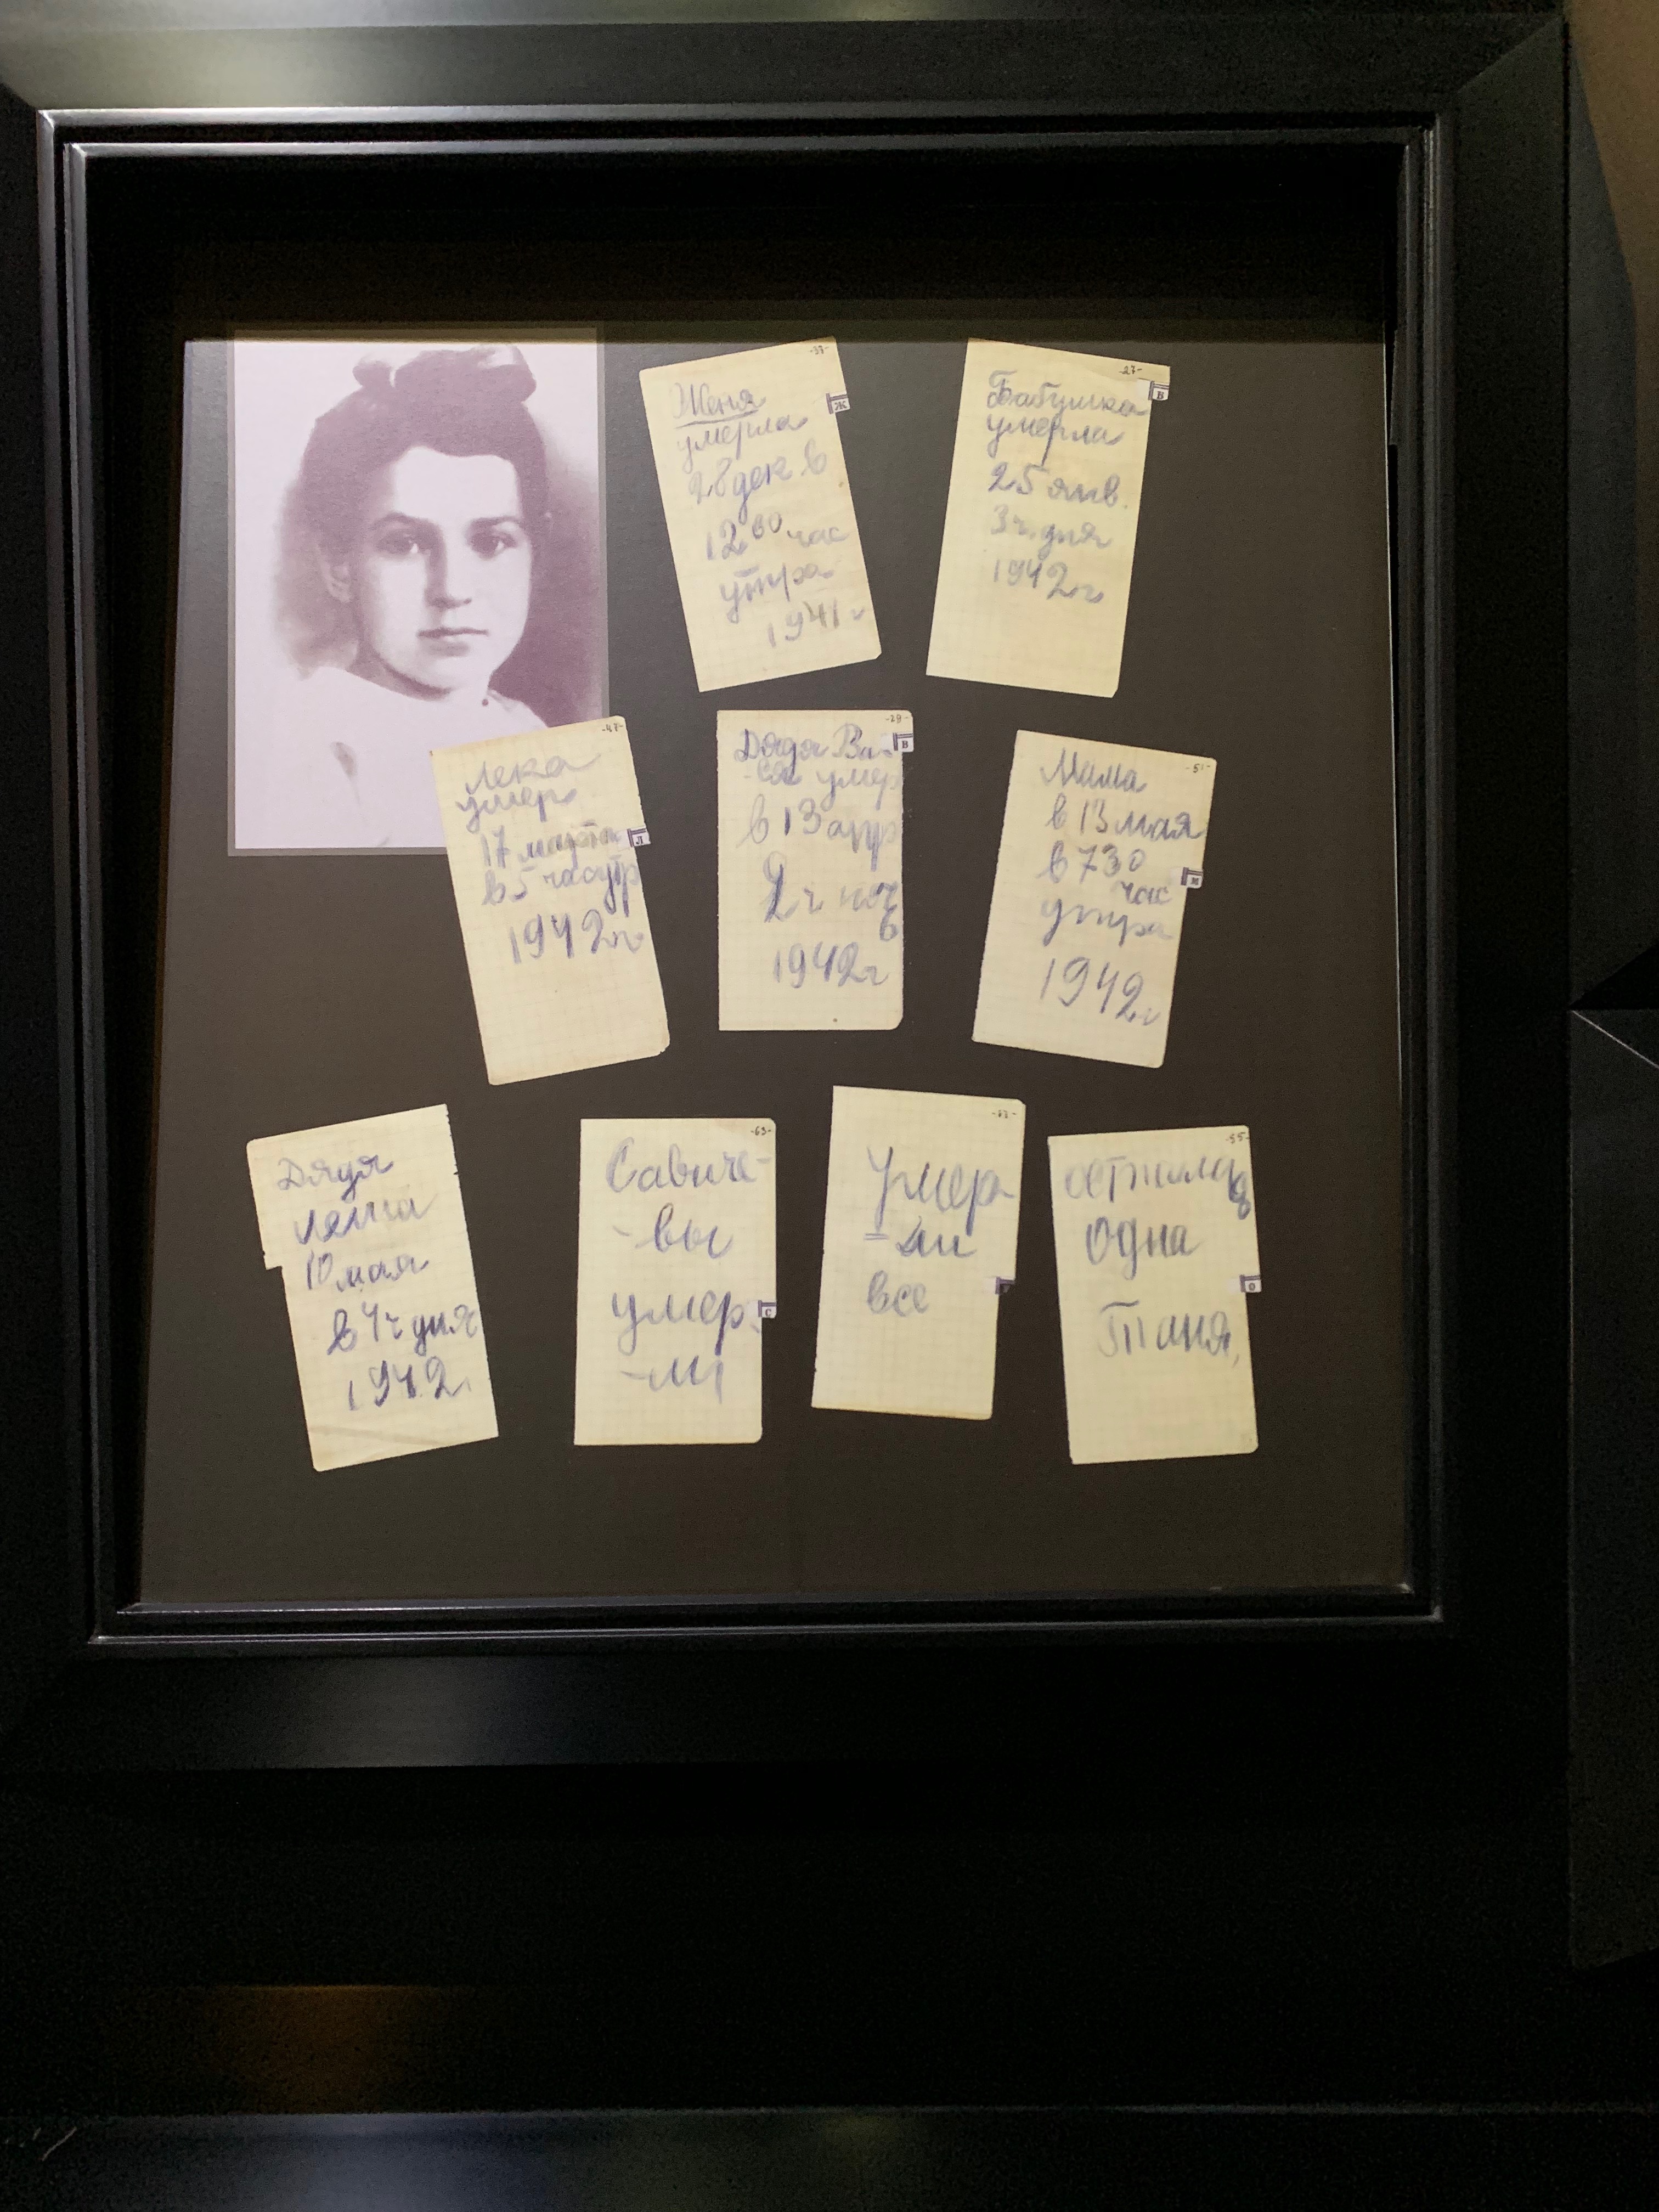 -37-
Ж
Женя
умерла
28 дек в
12 00 час
утра
1941 г
-27-
В
Бабушка
умерла
25 янв.
3 ч. дня
1942 г
-47-
Л
Лека
умер
17 марта
в 5 часутр
1942 г
-29-
В
Дядя Ва
-ся умер
в 13 апр
2 ч ноч
ь
1942 г
-51-
М
Мама
в 13 мая
в 7 30
час
утра
1942 г
Дядя
Леша
10 мая
в 4 ч дня
1942
-63-
С
Савиче-
-вы
умер
-ли
Умер
-ли
все
-55-
О
Осталась
одна
Таня